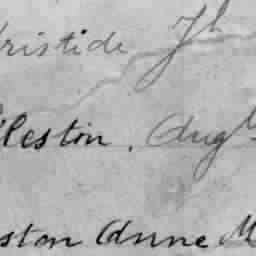 ristide Jh
lleston. Augte
ston Anne M